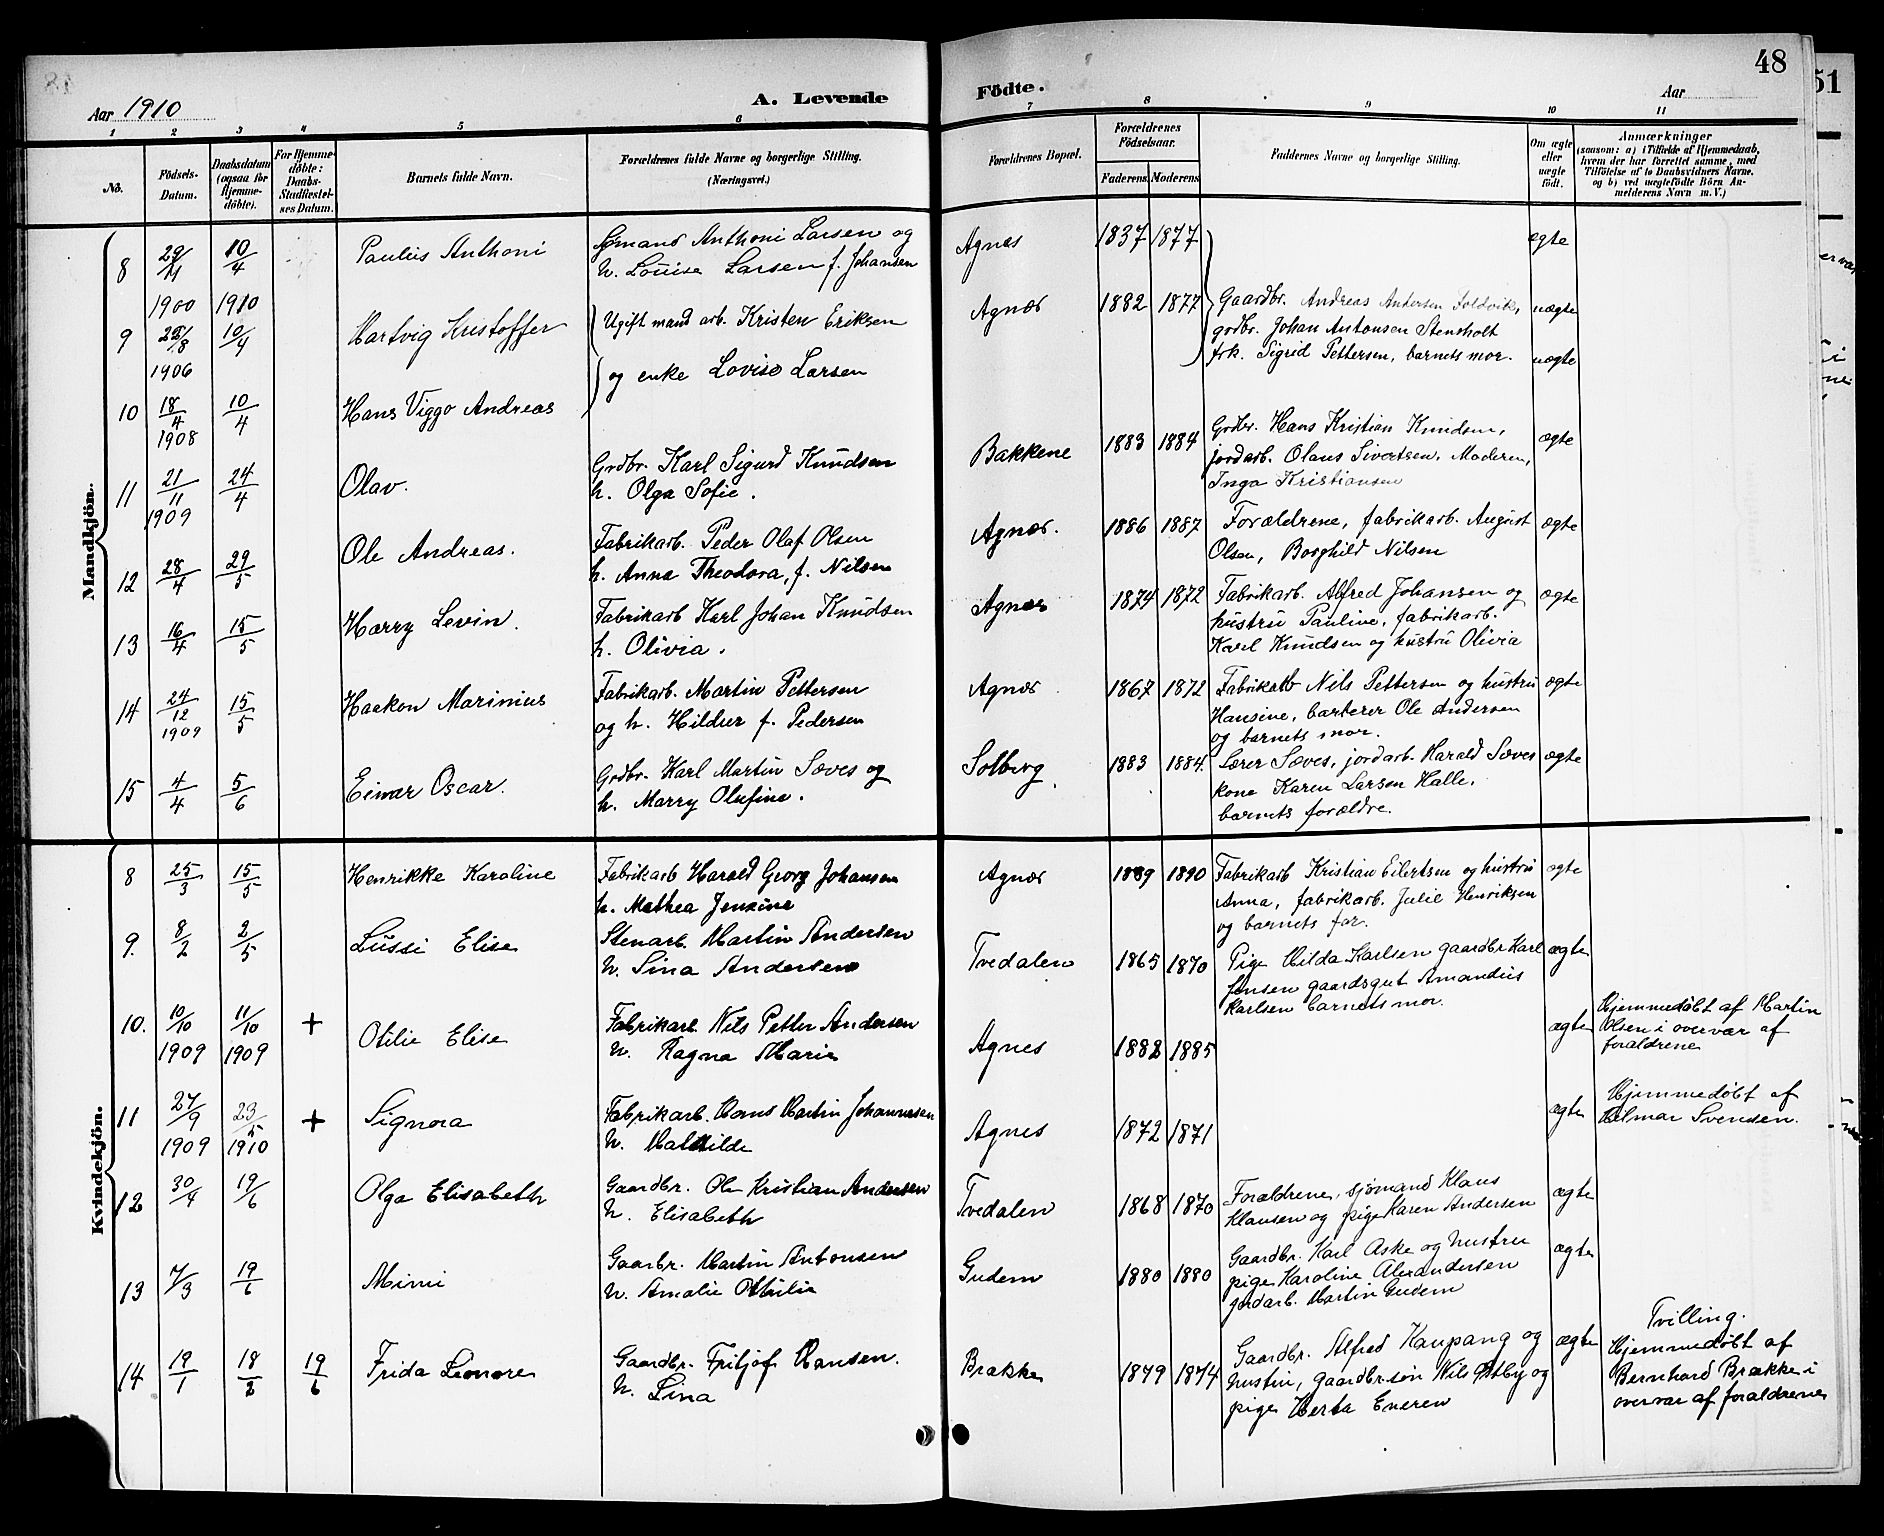 48
51
Aar 1910
A. Levende
Födte.
Aar
1 2 3 4 5 6 7 8 9 10 11
No.
Födsels-
Datum.
Daabsdatum
(ogsaa for
Hjemme-
döbte).
For Hjemme-
döbte:
Daabs-
Stadfæstel-
ses Datum.
Barnets fulde Navn.
Forældrenes fulde Navne og borgerlige Stilling.
(Næringsvei.)
Forældrenes Bopæl.
Forældrenes
Födselsaar.
Faderens. Moderens.
Faddernes Navne og borgerlige Stilling.
Om ægte
eller
uægte
födt.
Anmærkninger
(saasom: a) i Tilfælde af Hjemmedaab,
hvem der har forrettet samme, med
Tilföielse af to Daabsvidners Navne,
og b) ved uægtefödte Börn An-
melderens Navn m. V.)
Mandkjön.
8 29/11 1900 10/4 1910 Paulus Anthoni
Sømand Anthoni Larsen og
h. Louise Larsen f. Johansen
Agnes 1837 1877 ægte
9 28/8 1906 10/4 Hartvig Kristoffer
Ugift mand arb. Kristen Eriksen
og enke Lovise Larsen
Agnæs 1882 1877
Gaardbr. Andreas Antersen Foldvik,
grdbr. Johan Antonsen Stensholt
frk. Sigrid Pettersen, barnets mor.
uægte
uægte
10 18/4 1908 10/4 Hans Viggo Andreas
11 21/11 1909 24/4 Olav.
Grdbr. Karl Sigurd Knudsen
h. Olga Sofie.
Bakkene 1883 1884
Grdbr. Hans Kristian Knudsen,
jordarb. Olaus Sivertsen, Moderen,
Inga Kristiansen
ægte
12 28/4 29/5 Ole Andreas.
Fabrikarb. Peder Olaf Olsen
h. Anna Theodora, f. Nilsen
Agnæs. 1886 1887
Forældrene, fabrikarb. August
Olsen, Borghild Nilsen
ægte
13 16/4 15/5 Harry Levin.
Fabrikarb Karl Johan Knudsen
h. Olivia.
Agnæs 1874 1872
Fabrikarb. Alfred Johansen og
hustru Pauline, fabrikarb.
Karl Knudsen og hustru Olivia
ægte
14 24/12 1909 15/5 Haakon Marinius
Fabrikarb. Martin Pettersen
og h. Hildur f. Pedersen
Agnæs 1867 1872
Fabrikarb Nils Pettersen og hustru
Hansine, barberer Ole Andersen
og barnets mor.
ægte
15 4/4 5/6 Einar Oscar.
Grdbr. Karl Martin Sæves og
h. Marry Olufine.
Solberg. 1883 1884.
Lærer Sæves, jordarb. Harald Sæves
kone Karen Larsen Halle,
barnets forældre.
ægte
Kvindekjön.
8 25/3 15/5 Henrikke Karoline
Fabrikarb Harald Georg Johansen
h. Mathea Jensine
Agnæs 1889 1890
Fabrikarb Kristian Eilertsen og hustru
Anna, fabrikarb. Julie Henriksen
og barnets far.
ægte
9. 8/2 2/5 Lussi Elise
Stenarb. Martin Andersen
h. Lina Andersen
Tvedalen 1865 1870
Pige Hilda Karlsen gaardbr. Karl
Jensen gaardsgut Amandus
Karlsen barnets mor.
ægte
10. 10/10 1909 11/10 1909 + Otilie Elise
Fabrikarb Nils Petter Andersen
h. Ragna Marie
Agnes 1882 1885
ægte
Hjemmedøbt af Martin
Olsen i overvær af
forældrene
11 27/9 1909 23/5 1910 + Signora
Fabrikarb. Hans Martin Johannesen
h. Mathilde
Agnes 1872 1871
ægte
Hjemmedøbt af
Hilmar Svensen.
12 30/4 19/6 Olga Elisabeth
Gaardbr. Ole Kristian Andersen
h. Elisabeth
Tvedalen 1868 1870
Forældrene, sjømand Klaus
Klausen og pige Karen Andersen
ægte
13 7/3 19/6 Mimi
Gaarbr. Martin Antonsen
h. Amalie Othilie
Gudem 1880 1880
Gaardbr. Karl Aske og hustru
pige Karoline Alexandersen
jordarb. Martin Gudem
ægte
14 19/1 18/2 19/6 Frida Leonore
Gaardbr. Fritjof Hansen.
h. Lina
Brække 1879 1874
Gaardbr. Alfred Kaupang og
hustru, gaardbr.søn Nils Østby og
pige Herta Eneren
ægte
Tvilling.
Hjemmedøbt af
Bernhard Brække i
overvær af forældrene